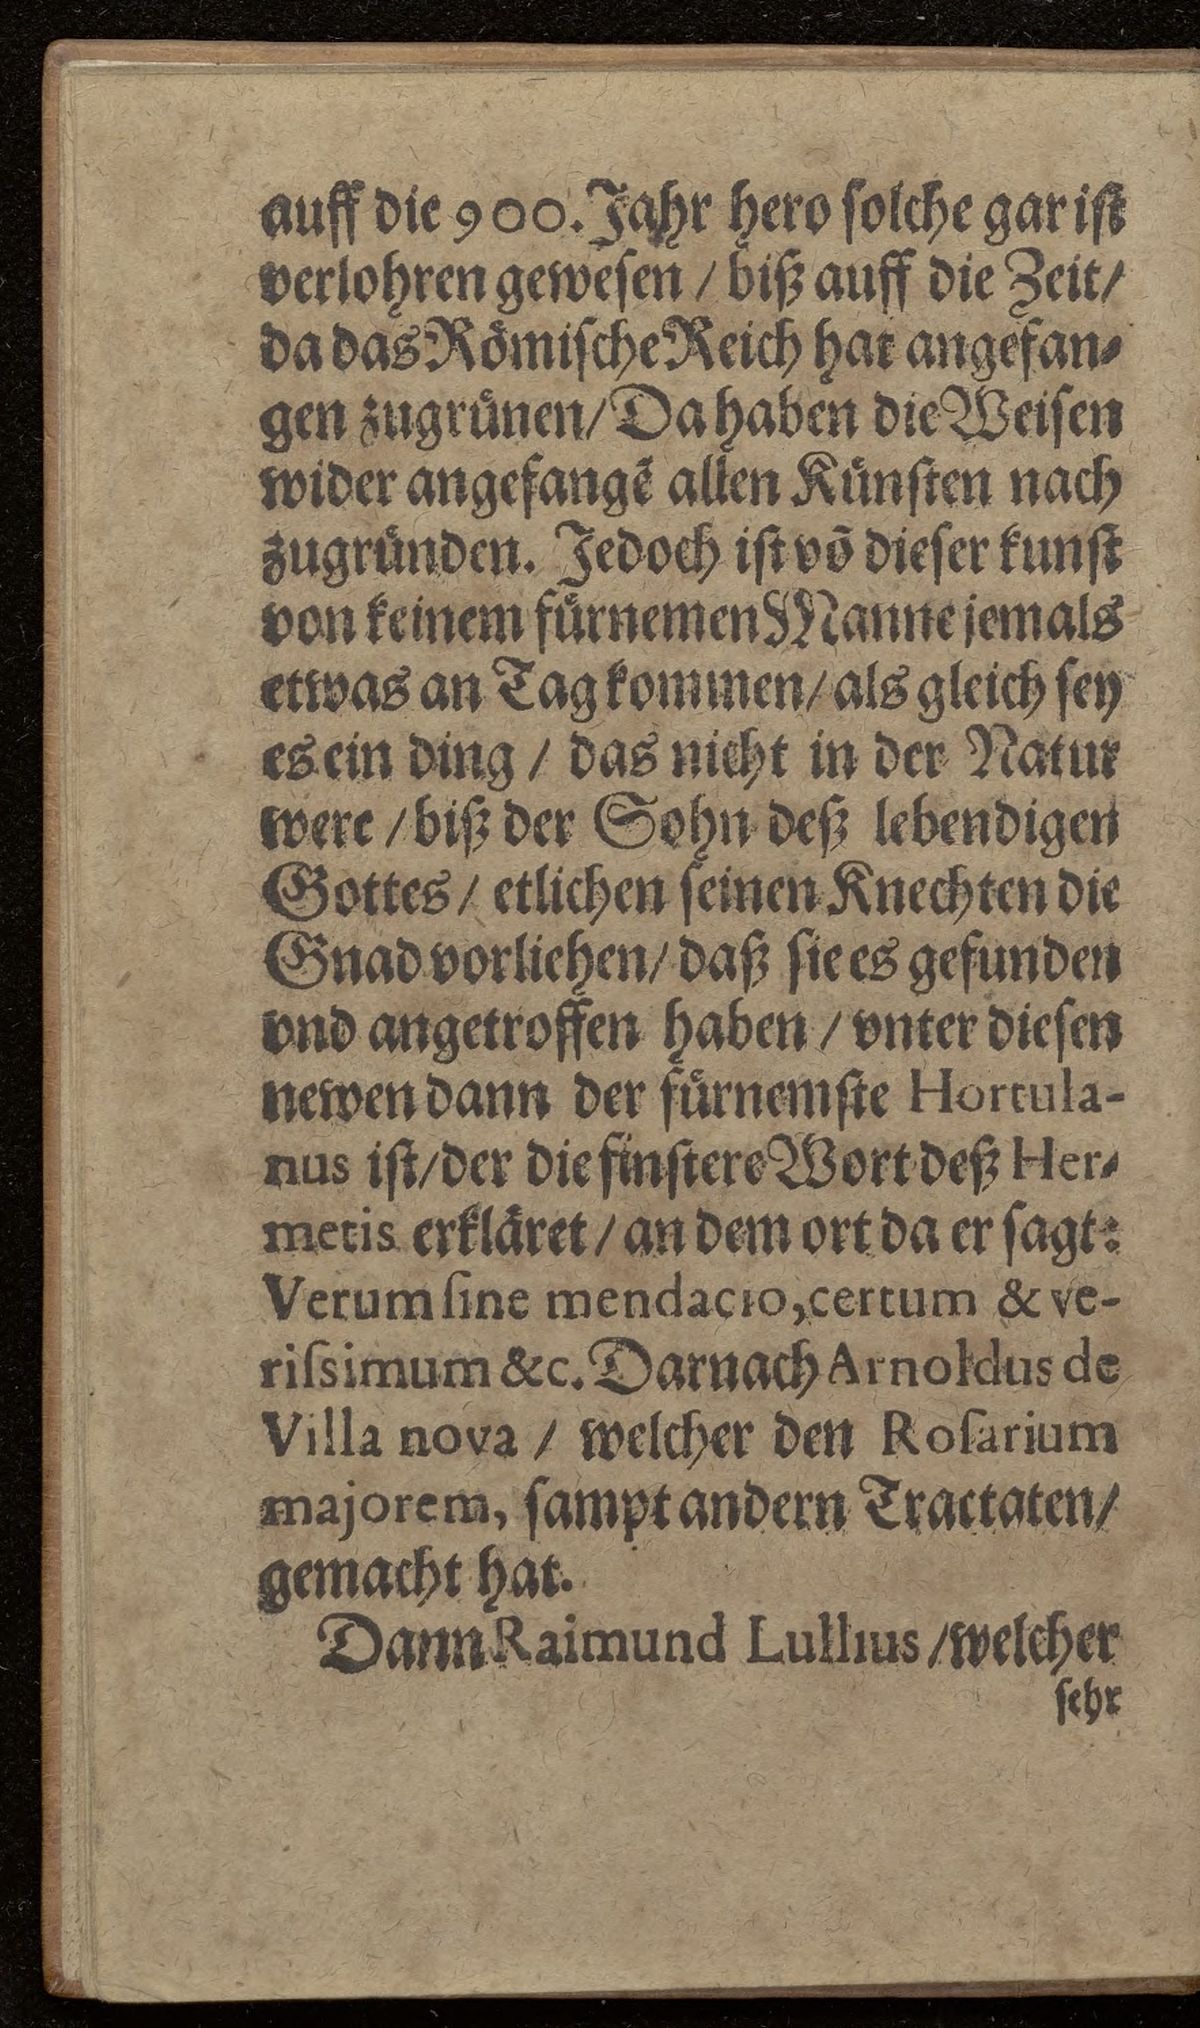 auff die 900. Jahr hero ſolche gar iſt
verlohren geweſen / biß auff die Zeit /
da das Römiſche Reich hat angefan⸗
gen zugrünen / Da haben die Weiſen
wider angefangē allen Künſten nach
zugründen. Jedoch iſt vō dieſer kunſt
von keinem fürnemen Manne jemals
etwas an Tag kommen / als gleich ſey
es ein ding / das nicht in der Natur
were / biß der Sohn deß lebendigen
Gottes / etlichen ſeinen Knechten die
Gnad vorliehen / daß ſie es gefunden
vnd angetroffen haben / vnter dieſen
newen dann der fürnemſte Hortula-
nus iſt / der die finſtere Wort deß Her⸗
metis erkläret / an dem ort da er ſagt:
Verum ſine mendacio, certum & ve-
riſsimum &c. Darnach Arnoldus de
Villa nova / welcher den Roſarium
majorem, ſampt andern Tractaten /
gemacht hat.
Dann Raimund Lullius / welcher
ſehr